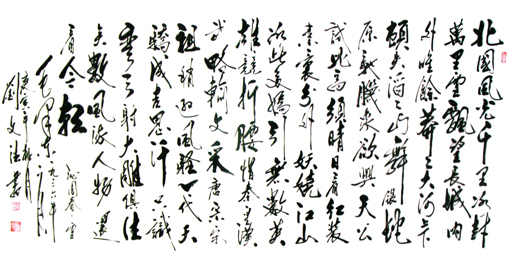 北國風光千里冰封
萬里雪飄望長城內
外唯餘莽莽大河上下
頓失滔滔山舞銀蛇
原馳臘象欲與天公
試比高須晴日看紅裝
素裹分外妖嬈江山
如此多嬌引無數英
雄競折腰惜秦皇漢
武略輸文采唐宗宋
祖稍遜風騷一代天
驕成吉思汗只識
彎弓射大雕俱往
矣數風流人物還
看今朝 沁園春雪
毛澤東 一九三六年